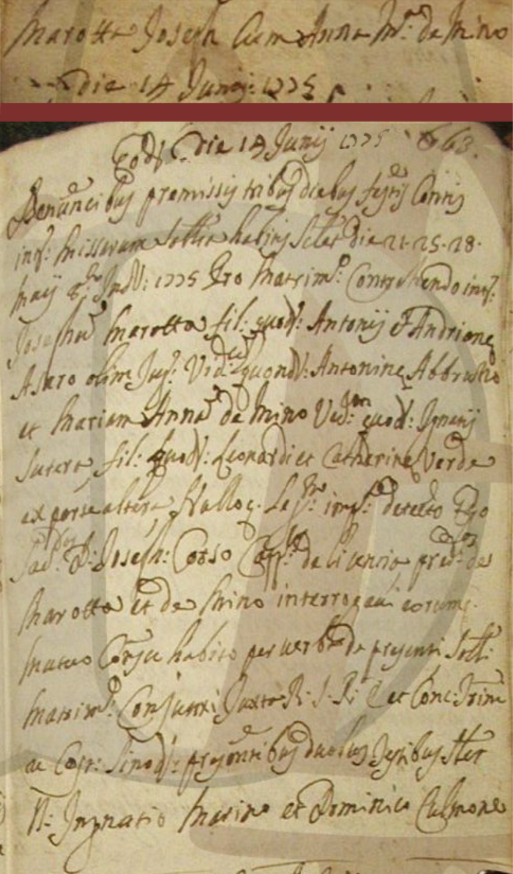 Marotta Joseph cum Anna M.ª de Mino
die 14 Junij 1775
Eod. Die 14 Junij 1775 663.
Denunc.bus premissis tribus diebus festis Contis
inf: missarum soll: habitis scilt die 21. 25. 28.
maij 8.e Ind: 1775 Pro Matrim.o Contrahendo int:
Josephu Marotta fil: quod: Antonij et Andriane
Asaro olim Jug: Vid: quond: Antonine Abbruscio
et Mariam Anna de Mino Vid: quod: Ignatij
Sutera, fil: quod: Leonardi et Catherine Verde
ex parte altera, Nulloq. Le.mo imp.to detecto Ego
Sac. D: Joseph: Corso Capp. de licencia pred: de
Marotta et de Mino interrogavi eorumq.
mutuo Consensu habito per verba de presenti soll:
matrim: Conjunxi Juxta R: S. R: E et Conc: Trim
ac Cost: Sinod: presentibus duobus Testibus Ster
N: Ingnatio Marino et Dominico Culmone